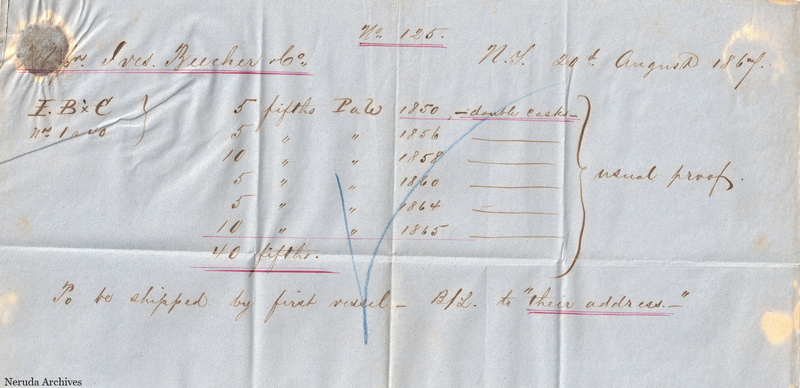 No 125.
Ives. Beecher & Co. N.Y. 20th August 1867.
I. B & C 5 fifths P & W 1850, — double casks —
5 〃 〃 1856
10 〃 〃 1858
5 〃 〃 1860 usual proof.
5 〃 〃 1864
10 〃 〃 1865
40 fifths.
To be shipped by first vessel — B/L. to "their address. —"
Neruda Archives